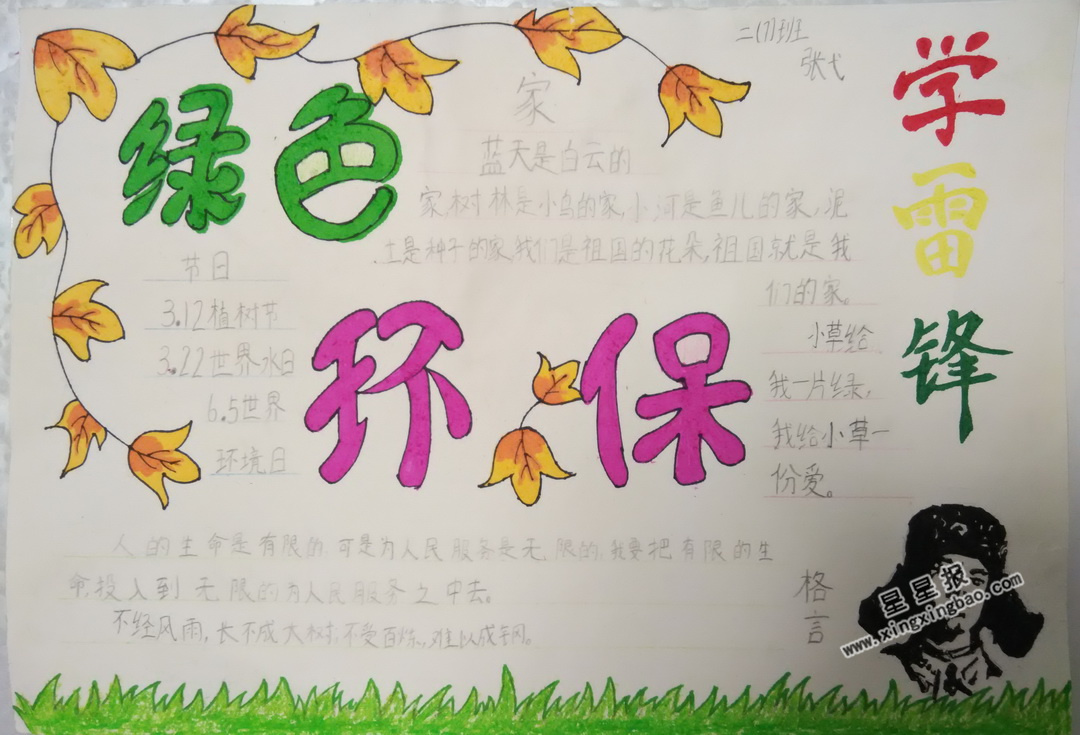 二(7)班
张弋
绿色
环保
学雷锋
家
蓝天是白云的
家,树林是小鸟的家,小河是鱼儿的家,泥
土是种子的家,我们是祖国的花朵,祖国就是我
们的家。
小草给
我一片绿,
我给小草一
份爱。
节日
3.12植树节
3.22世界水日
6.5世界
环境日
人的生命是有限的,可是为人民服务是无限的,我要把有限的生
命,投入到无限的为人民服务之中去。
不经风雨,长不成大树;不受百炼,难以成钢。
格言
星星报
www.xingxingbao.com